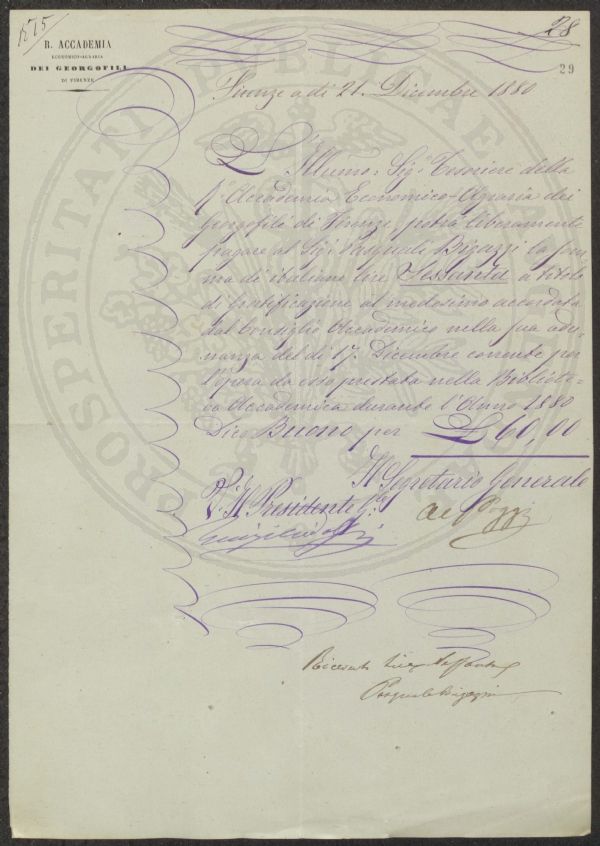 1575
28
29
R. ACCADEMIA
ECONOMICO-AGRARIA
DEI GEORGOFILI
DI FIRENZE
Firenze a dì 21. Dicembre 1880
L'Illumo: Sigr Tesoriere della
R. Accademia Economico-Agraria dei
Georgofili di Firenze, potrà liberamente
pagare al Sigr Pasquale Bigazzi la som-
ma di italiane lire Sessanta a titolo
di Gratificazione al medesimo accordata
dal Consiglio Accademico nella sua adu-
nanza del dì 17. Dicembre corrente per
l'opera da esso prestata nella Bibliote-
ca Accademica durante l'Anno 1880
Dico Buono per £ 60,00
Il Segretario Generale
V. Il Presidente
Ricevuto Lire Sessanta
Pasquale Bigazzi
PROSPERITATI PUBLICAE